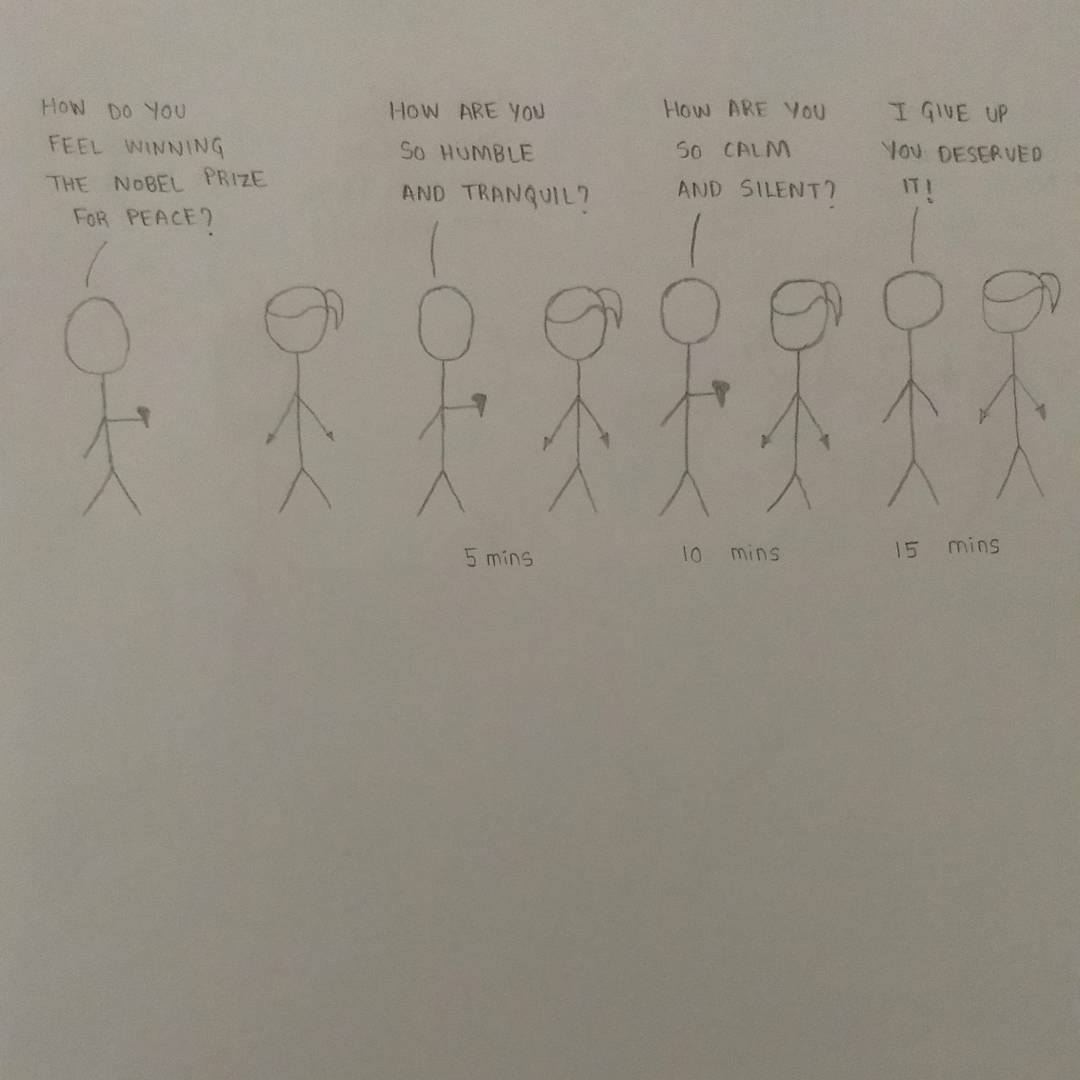 HOW DO YOU
FEEL WINNING
THE NOBEL PRIZE
FOR PEACE?
HOW ARE YOU
SO HUMBLE
AND TRANQUIL?
5 mins
HOW ARE YOU
SO CALM
AND SILENT?
10 mins
I GIVE UP
YOU DESERVED
IT!
15 mins